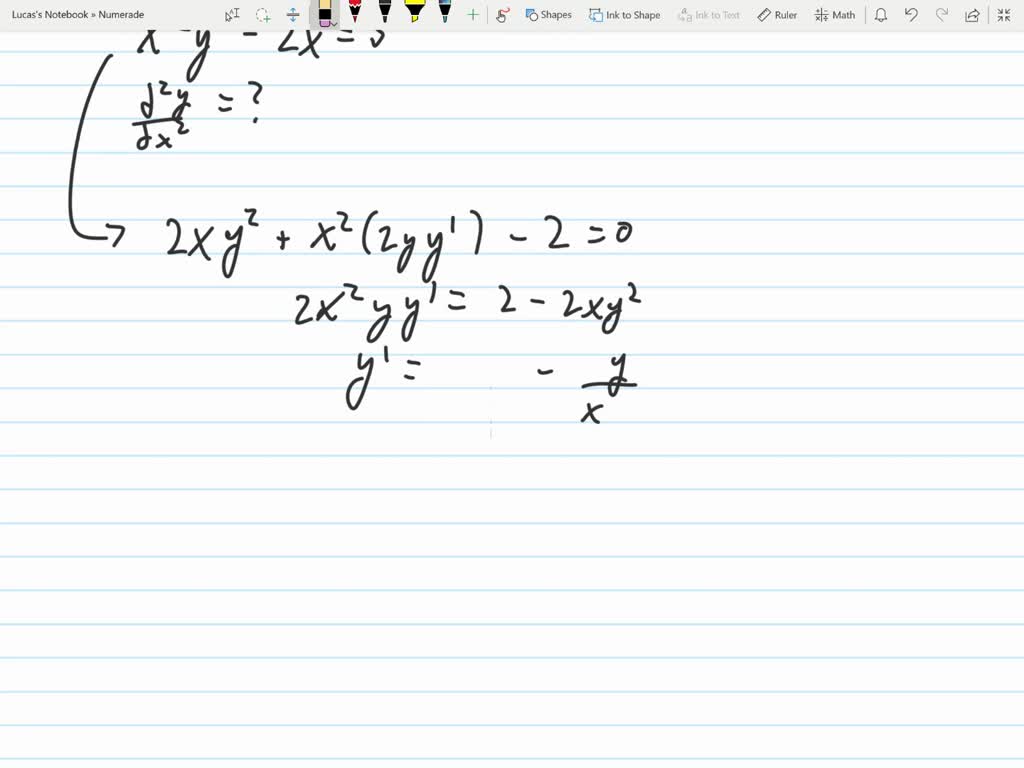 Lucas's Notebook » Numerade
Shapes Ink to Shape Ink to Text Ruler Math
x y - 2x = 3
d²y/dx² = ?
2xy² + x²(2yy') - 2 = 0
2x²yy' = 2 - 2xy²
y' = - y/x